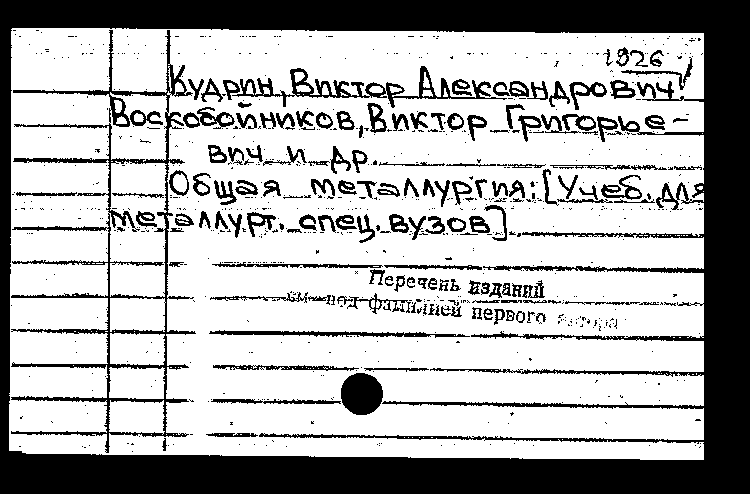 1926
Кудрин, Виктор Александрович!
Воскобойников, Виктор Григорье-
вич и др.
Общая металлургия: [Учеб. для
металлург. спец. вузов].
Перечень изданий
см под фамилией первого автора